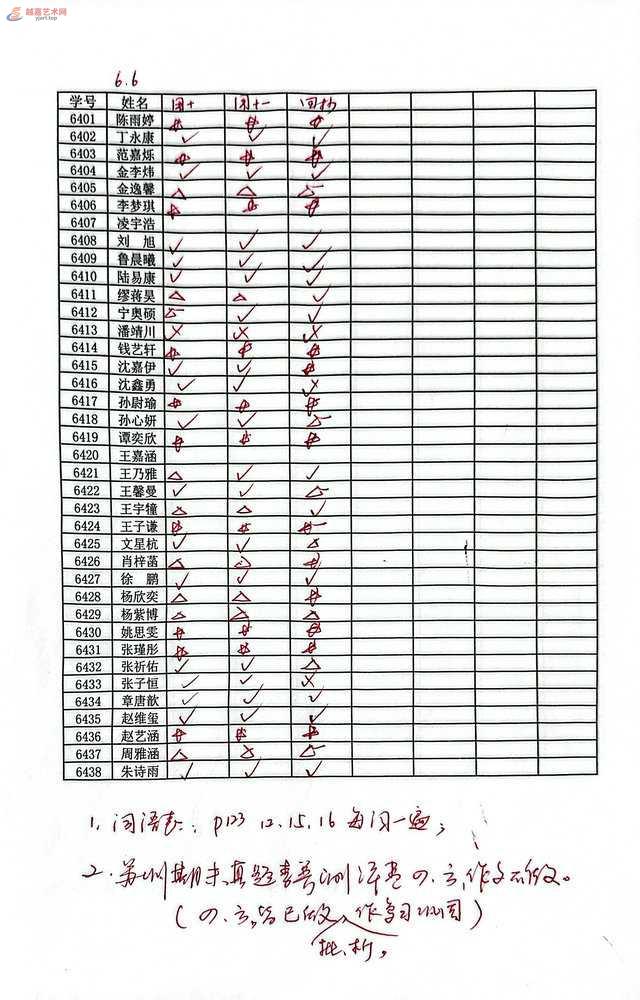 越嘉艺术网
yjart.top
6.6
学号 姓名 词十 词十一 词抄
6401 陈雨婷
6402 丁永康 ✓ ✓ ✓
6403 范嘉烁
6404 金李炜 ✓ ✓ ✓
6405 金逸馨 △ △ △
6406 李梦琪
6407 凌宇浩
6408 刘 旭 ✓ ✓ ✓
6409 鲁晨曦 ✓ ✓ ✓
6410 陆易康 ✓ ✓ ✓
6411 缪蒋昊 △ △ ✓
6412 宁奥硕 △ ✓ ✓
6413 潘靖川
6414 钱艺轩
6415 沈嘉伊 ✓ ✓
6416 沈鑫勇 ✓ ✓
6417 孙尉瑜
6418 孙心妍 ✓ ✓ △
6419 谭奕欣
6420 王嘉涵
6421 王乃雅 △ ✓ ✓
6422 王馨曼 ✓ ✓ △
6423 王宇犝 △ △ ✓
6424 王子谦
6425 文星杭 ✓ ✓ △
6426 肖梓菡 △ △
6427 徐 鹏 ✓ ✓ ✓
6428 杨欣奕 △ △
6429 杨紫博 △ △ △
6430 姚思雯
6431 张瑾彤
6432 张祈佑 ✓ ✓ △
6433 张子恒 ✓ ✓
6434 章唐歆 ✓ ✓ ✓
6435 赵维玺 ✓ ✓ ✓
6436 赵艺涵
6437 周雅涵 △ △ △
6438 朱诗雨 ✓ ✓ ✓
1. 词语表: P123 12.15.16 每词一遍;
2. 苏州期末真题 四.六,作文不做。
(四.六,皆已做 作复习巩固)
批.析。